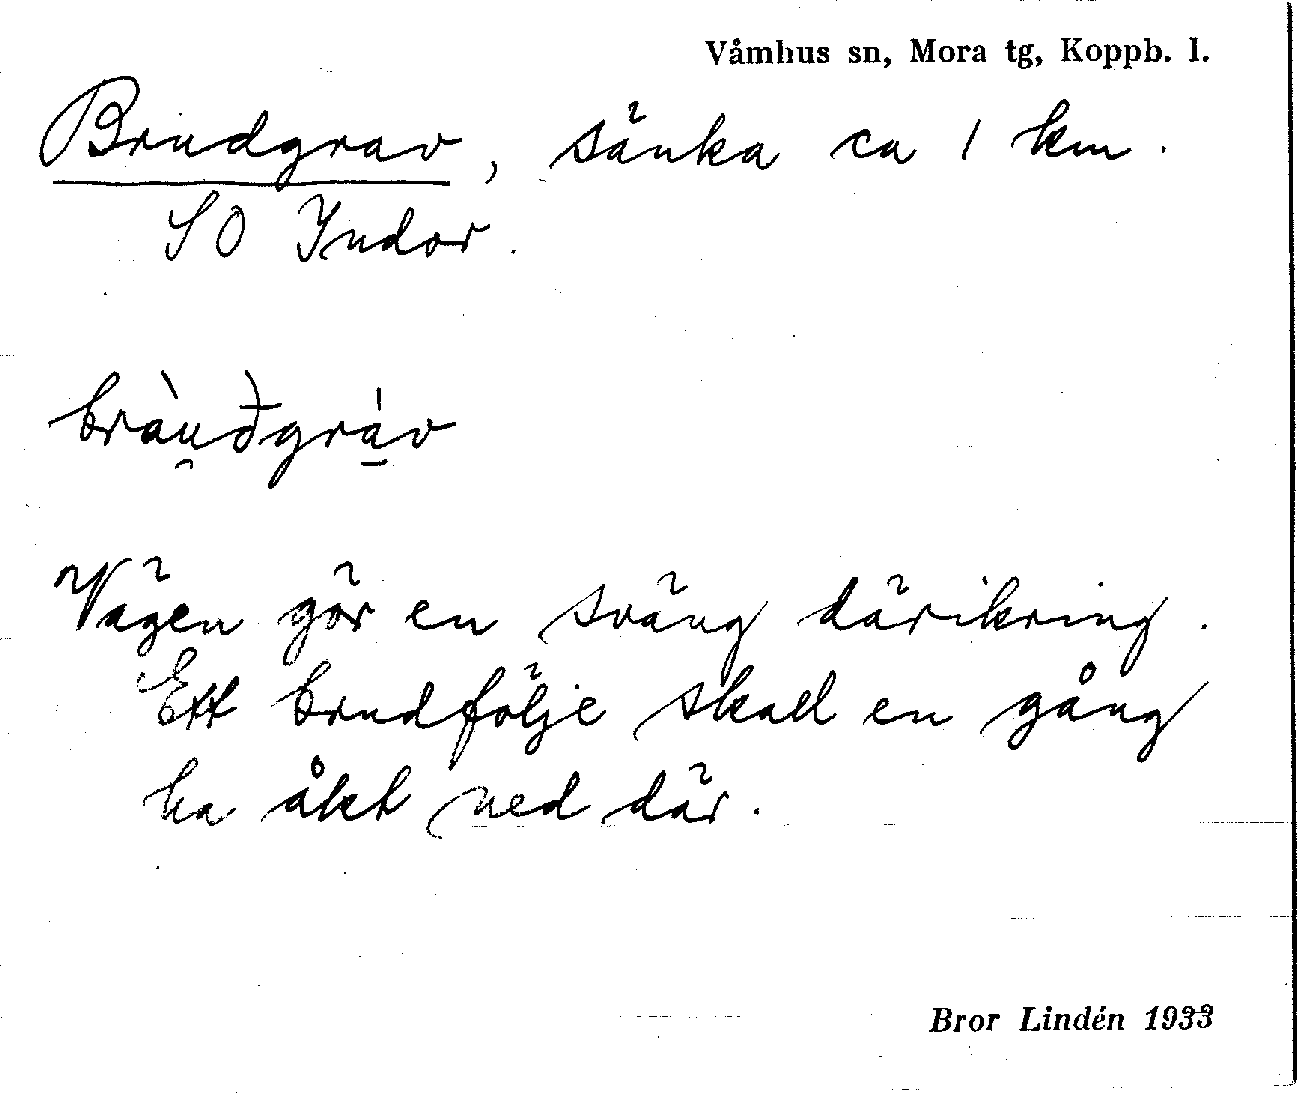 Våmhus sn, Mora tg, Koppb. l.
Brudgrav, sänka ca 1 km.
SO Indor.
Vägen gör en sväng däríkring.
Ett brudfölje skall en gång
ha åkt ned där.
Bror Lindén 1933